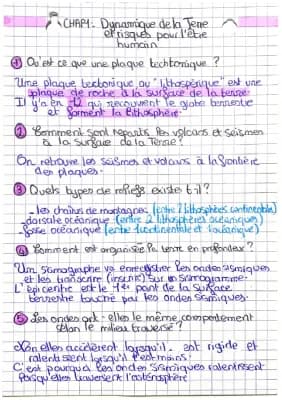 CHAP1- Dynamique de la Terre
et risques pour l'être
humain
① Qu'est ce que une plaque tectonique ?
Une plaque tectonique ou "lithosphérique" est une
plaque de roche à la surface de la terre.
Il y'en a 12 qui recouvrent le globe terrestre
et forment la lithosphère.
② Comment sont repartis les volcans et séismes
à la surface de la Terre?
On retrouve les séismes et volcans à la frontière
des plaques.
③ Quels types de reliefs existe t-il?
- les chaînes de montagnes (entre 2 lithosphères continentales)
- dorsale océanique (entre 2 lithosphères océaniques)
- fosse océanique (entre 1 continentale et 1 océanique)
④ Comment est organisée la terre en profondeur ?
Un sismographe va enregistrer les ondes sismiques
et les transcrire (inscrire) sur un sismogramme.
L'épicentre est le 1er point de la surface
terrestre touché par les ondes sismiques.
⑤ Les ondes ont-elles le même comportement
selon le milieu traversé ?
Non elles accélèrent lorsqu'il est rigide et
ralentissent lorsqu'il l'est moins.
C'est pourquoi les ondes sismiques ralentissent
lorsqu'elles traversent l'asthénosphère